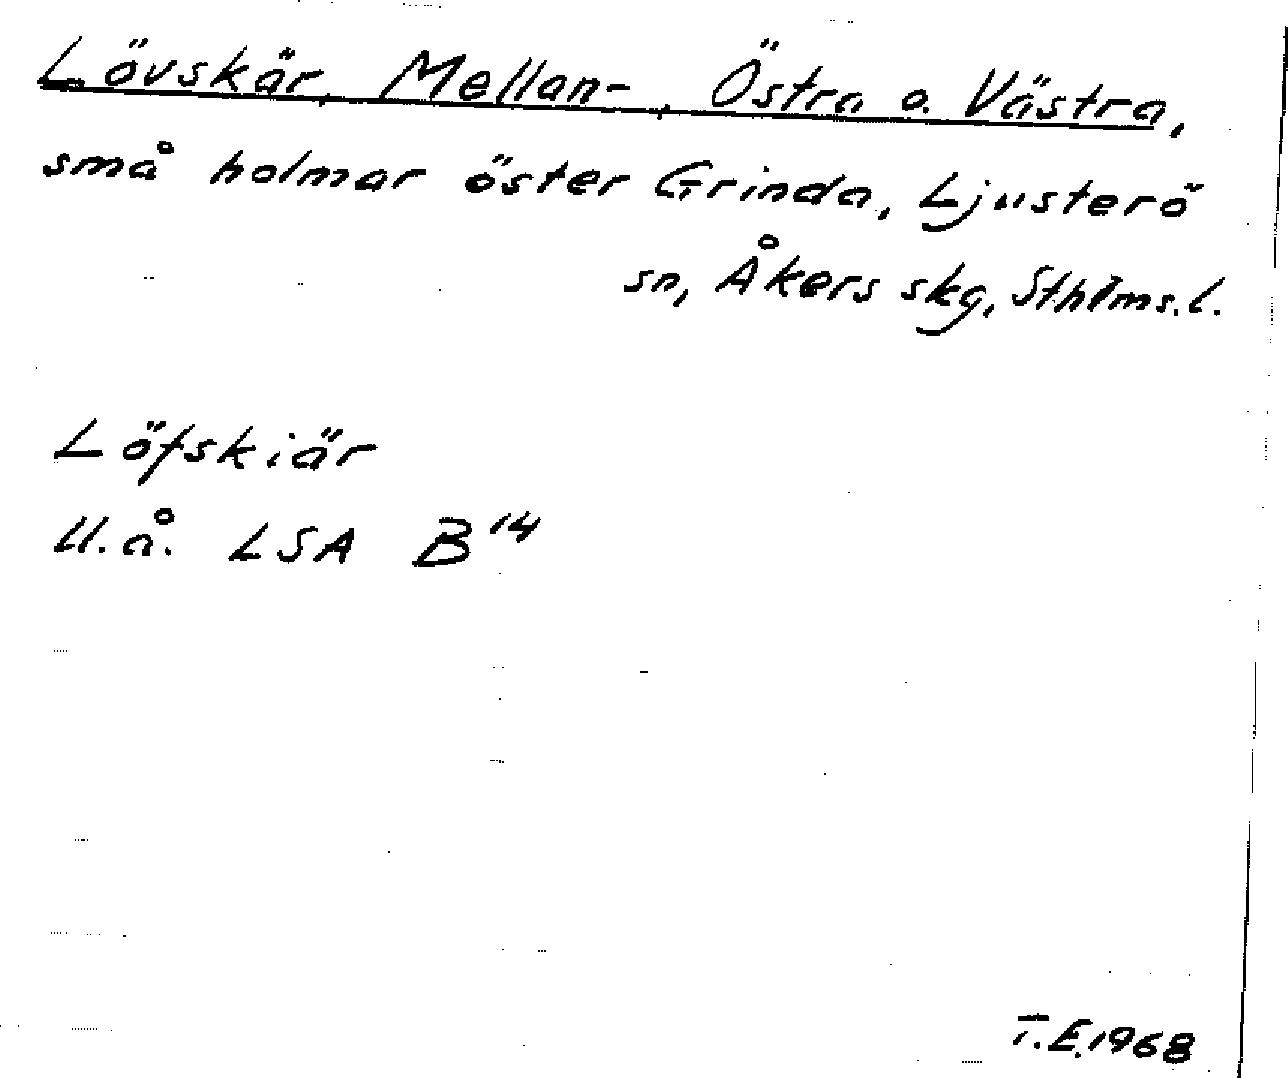 Lövskär, Mellan-, Östra o. Västra,
små holmar öster Grinda, Ljusterö
sn, Åkers skg, Sthlms. l.
Löfskiär
U.å. LSA B 14
T.E. 1968